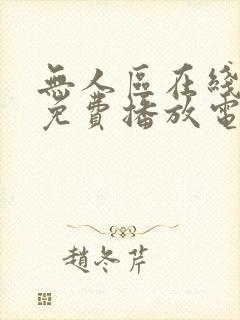 無人區在綫
免費播放電
趙冬芹